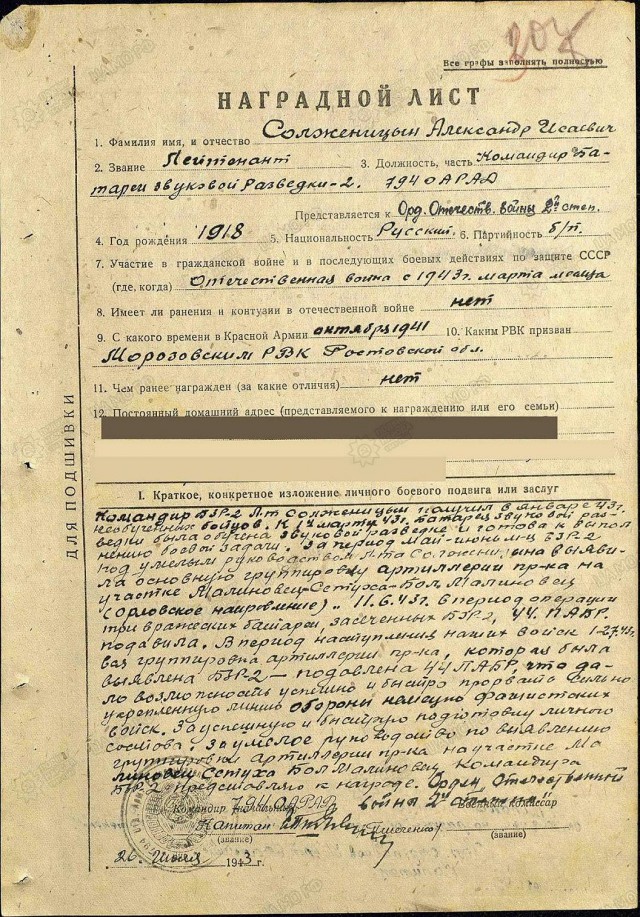 307
Все графы заполнять полностью
НАГРАДНОЙ ЛИСТ
1. Фамилия имя, и отчество Солженицын Александр Исаевич
2. Звание Лейтенант 3. Должность, часть Командир ба-
тареи звуковой разведки-2. 794 ОАРАД
Представляется к Орд. Отечеств. войны 2й степ.
4. Год рождения 1918 5. Национальность Русский 6. Партийность б/п.
7. Участие в гражданской войне и в последующих боевых действиях по защите СССР
(где, когда) Отечественная война с 1943г. марта месяца
8. Имеет ли ранения и контузии в отечественной войне нет
9. С какого времени в Красной Армии октябрь 1941 10. Каким РВК призван
Морозовским РВК Ростовской обл.
11. Чем ранее награжден (за какие отличия) нет
12. Постоянный домашний адрес (представляемого к награждению или его семьи)
ДЛЯ ПОДШИВКИ
I. Краткое, конкретное изложение личного боевого подвига или заслуг
Командир БЗР-2 Л-т Солженицын получил в январе 43г.
необученных бойцов. К 1й марту 43г. батарея звуковой раз-
ведки была обучена звуковой разведке и готова к выпол
нению боевой задачи. За период май-июнь м-ц БЗР-2
под умелым руководством Л-та Солженицына выяви-
ла основную группировку артиллерии пр-ка на
участке Малиновец-Сетуха-Бол. Малиновец
(Орловское направление). 11.6.43г. в период операции
три вражеских батареи, засеченных БЗР-2, 44. ПАБР.
подавила. В период наступления наших войск
вся группировка артиллерии пр-ка, которая была
выявлена БЗР-2 — подавлена 44 ПАБР, что да-
ло возможность успешно и быстро прорвать сильно
укрепленную линию обороны немецко фашистских
войск. За успешную и быструю подготовку личного
состава, за умелое руководство по выявлению
группировки артиллерии пр-ка на участке Ма
линовец Сетуха Бол Малиновец Командира
БЗР-2 представляю к награде. Орден Отечественной
войны 2й степени
Командир (начальник) 794 ОАРАД Военный комиссар
Капитан (Пшеченко)
(звание) (звание)
26 июля 1943 г.